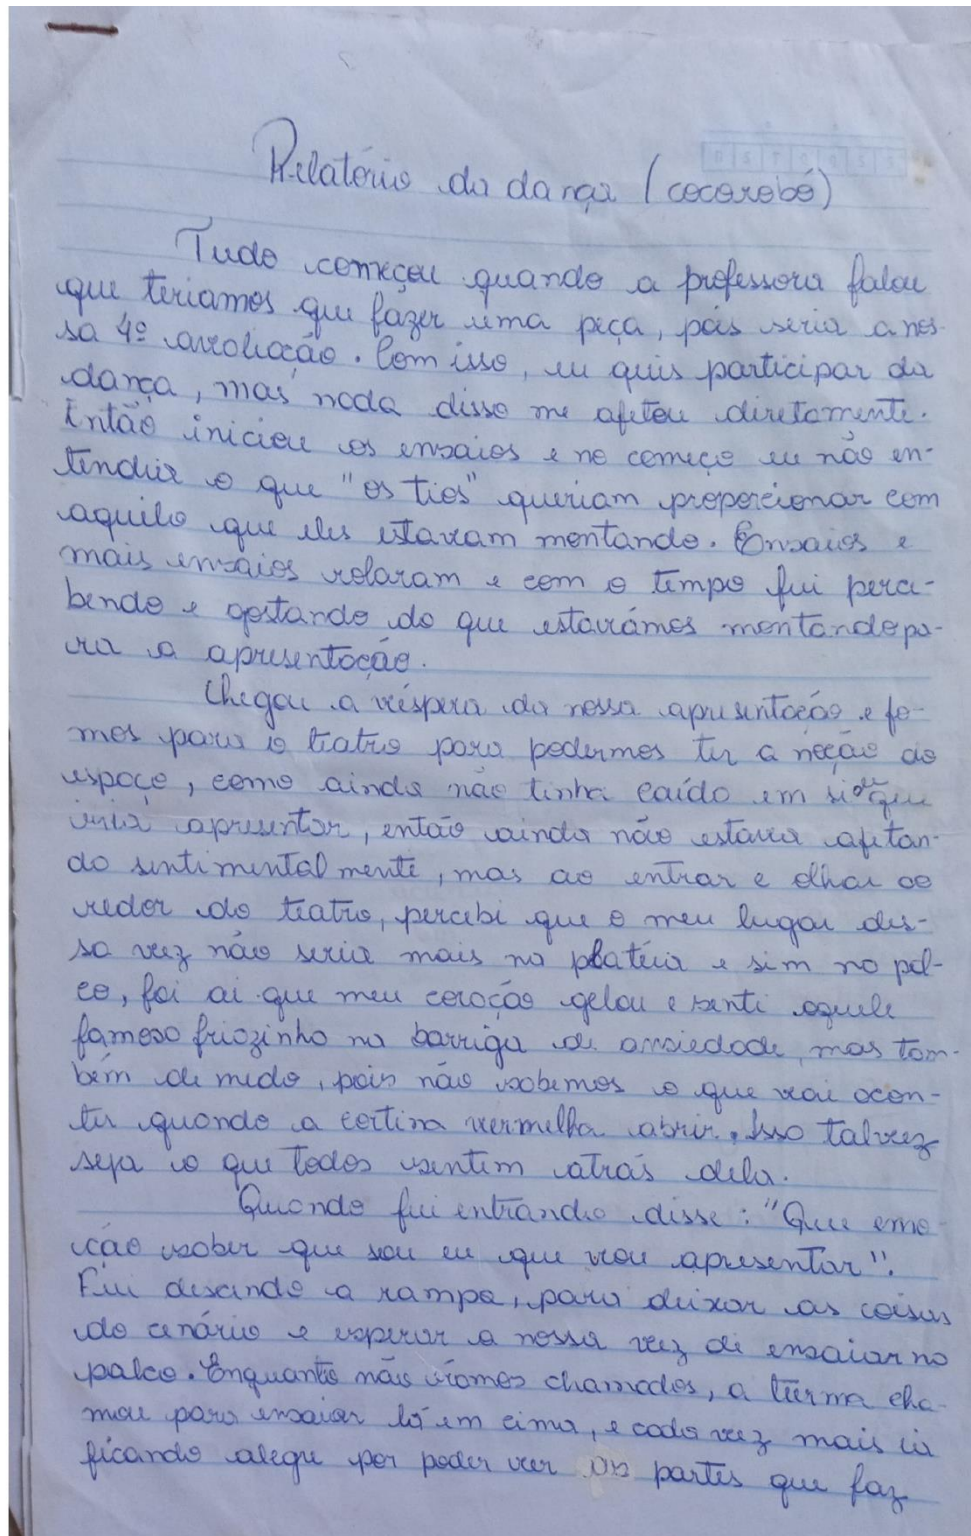 Relatório da dança (cocorobó)
Tudo começou quando a professora falou
que teriamos que fazer uma peça, pois seria a nos-
sa 4º avaliação. Com isso, eu quis participar da
dança, mas nada disso me afetou diretamente.
Então iniciou os ensaios e no começo eu não en-
tendia o que "os tios" queriam proporcionar com
aquilo que eles estavam montando. Ensaios e
mais ensaios rolaram e com o tempo fui perce-
bendo e gostando do que estavámos montando pa-
ra a apresentação.
Chegou a véspera da nossa apresentação e fo-
mos para o teatro para podermos ter a noção do
espaço, como ainda não tinha caído em si de que
iria apresentar, então ainda não estava afetan-
do sentimentalmente, mas ao entrar e olhar ao
redor do teatro, percebi que o meu lugar des-
sa vez não seria mais na platéia e sim no pal-
co, foi ai que meu coração gelou e senti aquele
famoso friozinho na barriga de ansiedade, mas tam-
bém de medo, pois não sabemos o que vai acon-
ter quando a cortina vermelha abrir. Isso talvez
seja o que todos sentem atrás dela.
Quando fui entrando disse: "Que emo-
ção saber que sou eu que vou apresentar".
Fui descendo a rampa, para deixar as coisas
do cenário e esperar a nossa vez de ensaiar no
palco. Enquanto não éramos chamados, a turma cha-
mou para ensaiar lá em cima, e cada vez mais ia
ficando alegre por poder ver as partes que faz